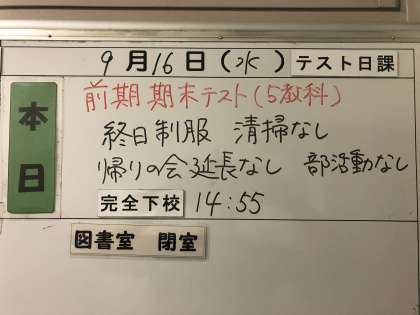 9月16日(水) テスト日課
本日
前期期末テスト(5教科)
終日制服 清掃なし
帰りの会延長なし 部活動なし
完全下校 14:55
図書室 閉室